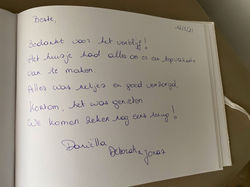 Beste,
12/7/21
Bedankt voor het verblijf!
Het huisje had alles om er een topvakantie
van te maken.
Alles was netjes en goed verzorgd.
Kortom, het was genieten
We komen zeker nog eens terug!
Daniëlla
Deborah &
Jonas